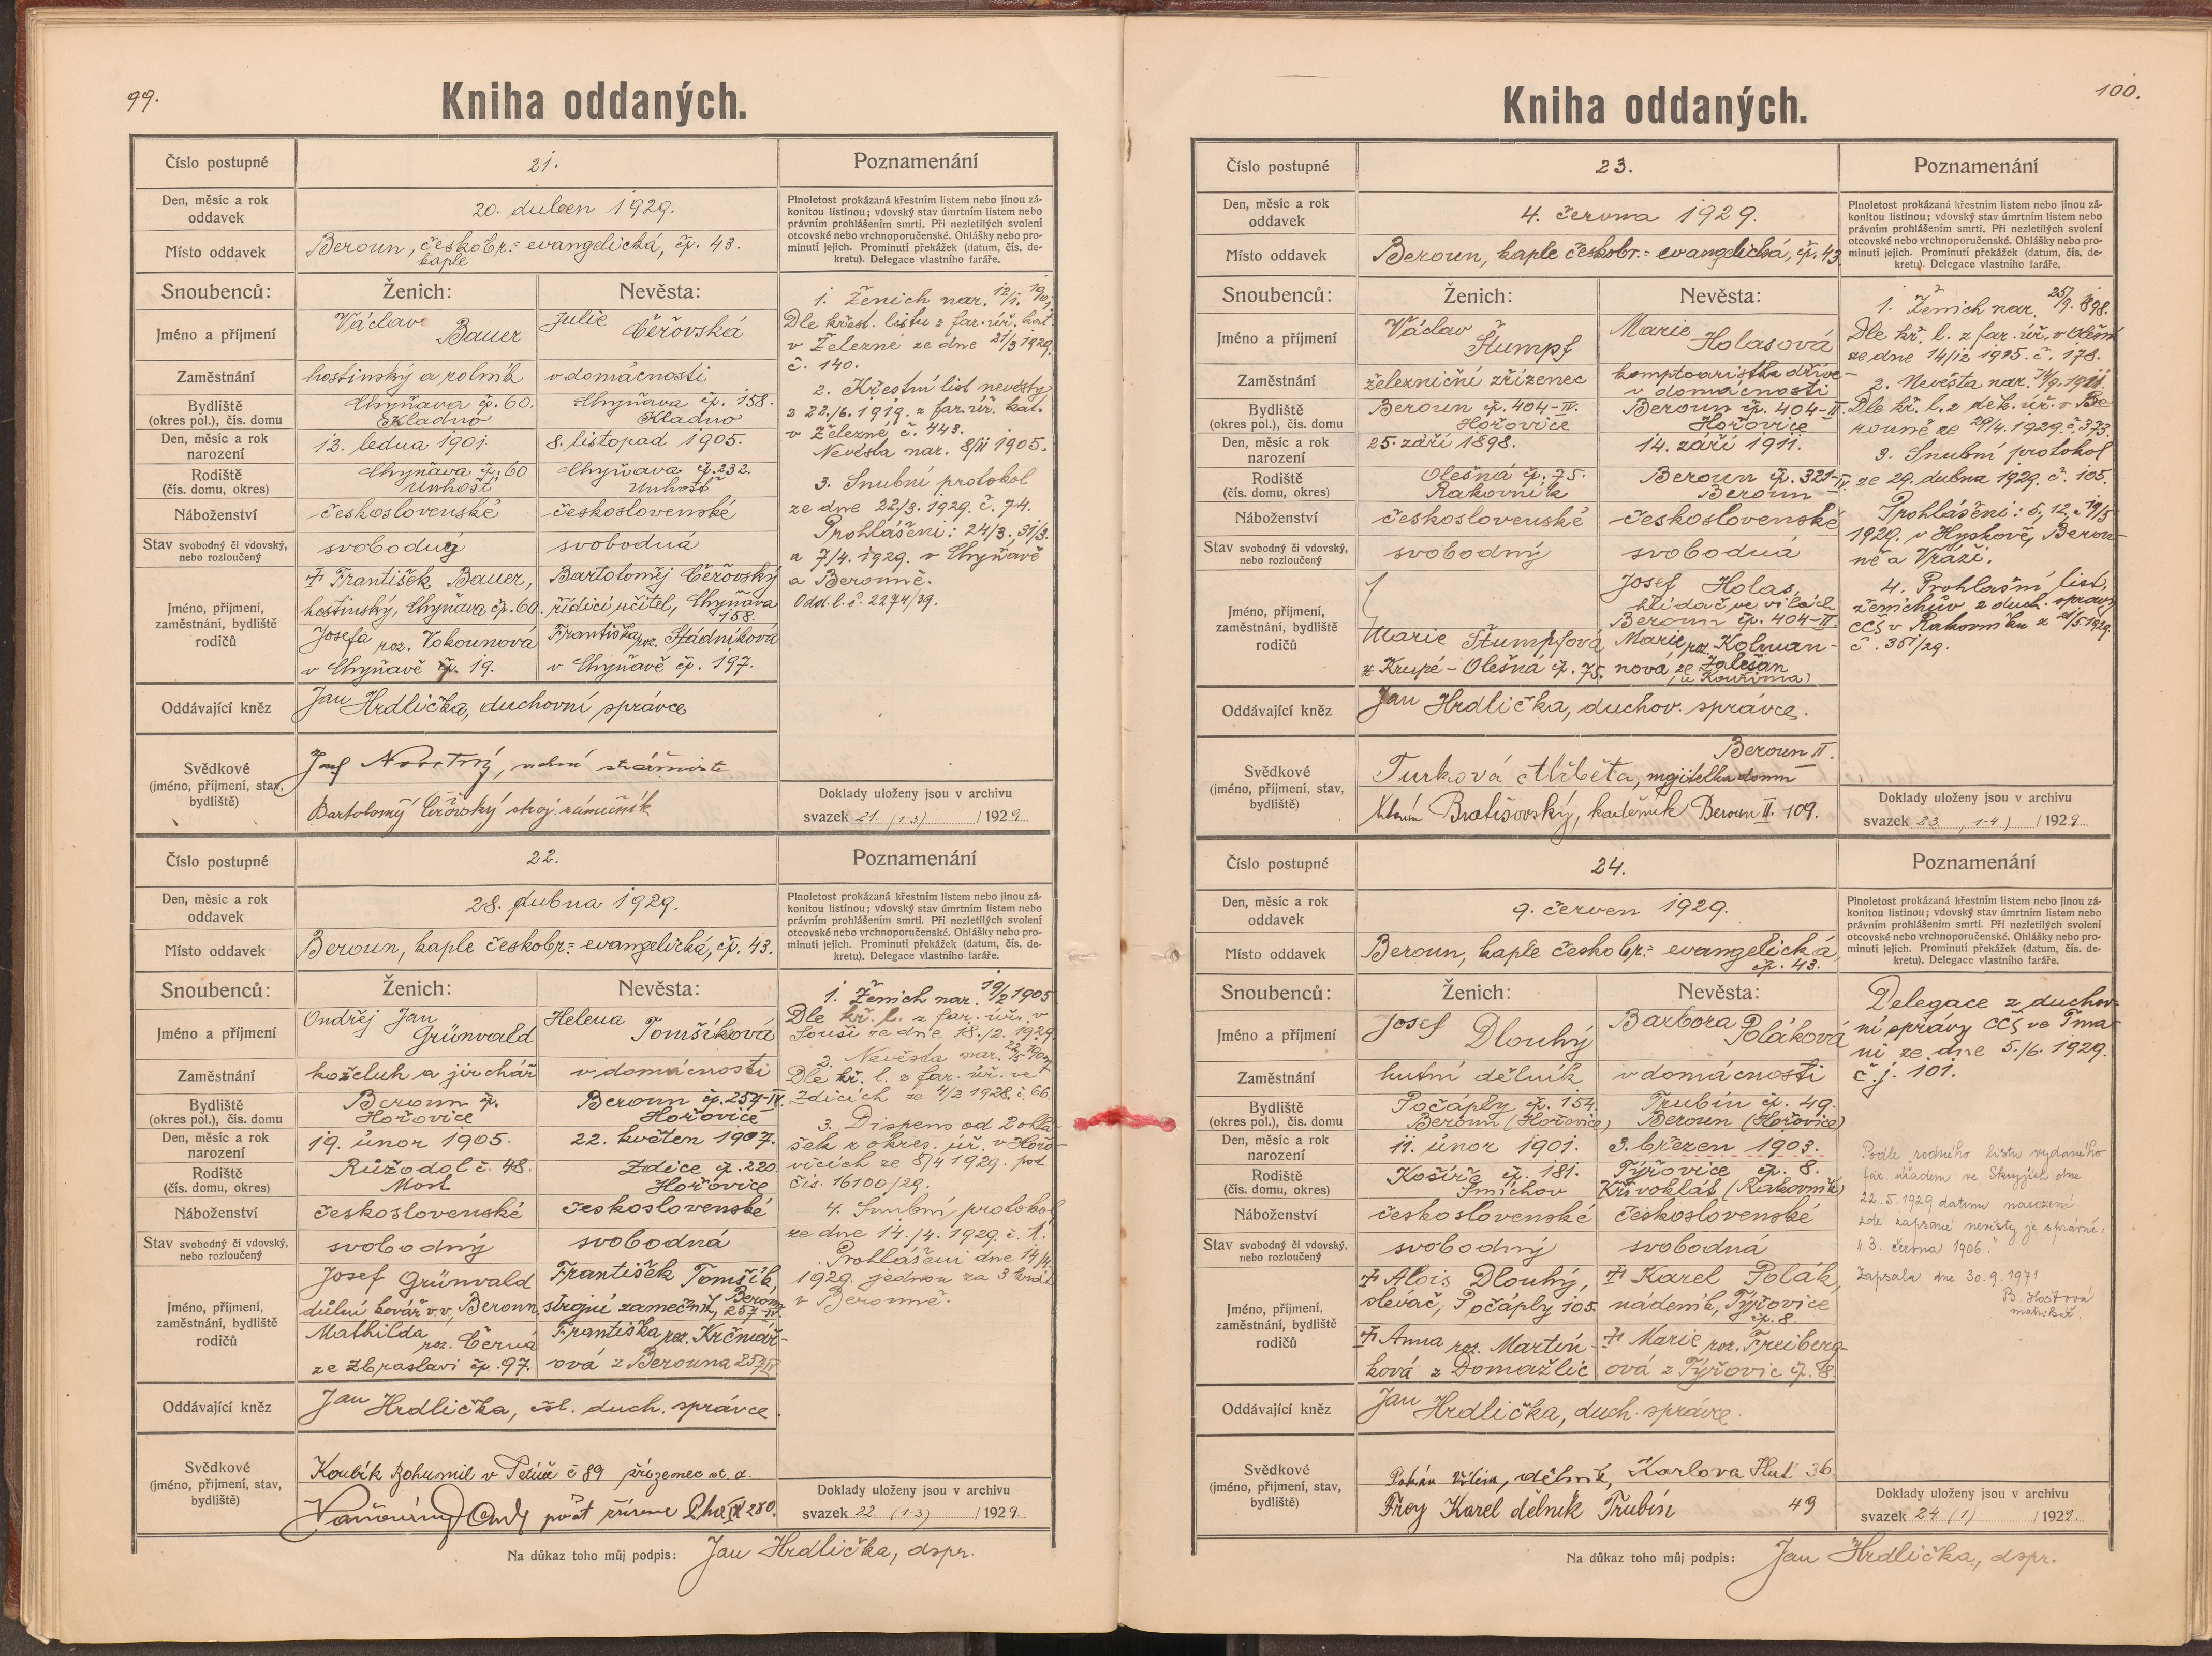 99.
Kniha oddaných.
Číslo postupné
21.
Poznamenání
Den, měsíc a rok
oddavek
20. duben 1929.
Plnoletost prokázaná křestním listem nebo jinou zá-
konitou listinou; vdovský stav úmrtním listem nebo
právním prohlášením smrti. Při nezletilých svolení
otcovské nebo vrchnoporučenské. Ohlášky nebo pro-
minutí jejich. Prominutí překážek (datum, čís. de-
kretu). Delegace vlastního faráře.
Místo oddavek
Beroun, českobr.= evangelická, čp. 43.
kaple
Snoubenců:
Ženich:
Nevěsta:
Jméno a příjmení
Václav Bauer
Julie Čěřovská
Zaměstnání
hostinský a rolník
v domácnosti
Bydliště
(okres pol.), čís. domu
Chyňava čp. 60.
Kladno
Chyňava čp. 158.
Kladno
Den, měsíc a rok
narození
12. ledna 1901.
8. listopad 1905.
Rodiště
(čís. domu, okres)
Chyňava čp. 60
Unhošť
Chyňava čp. 232.
Unhošť
Náboženství
československé
československé
Stav svobodný či vdovský,
nebo rozloučený
svobodný
svobodná
Jméno, příjmení,
zaměstnání, bydliště
rodičů
František Bauer,
hostinský, Chyňava čp. 60.
Josefa roz. Vokounová
v Chyňavě čp. 19.
Bartoloměj Čěřovský
řídící učitel, Chyňava
158.
Františka roz. Stádníková
v Chyňavě čp. 197.
1. Ženich nar. 12/1. 1901
Dle křest. listu z far. úř. kat.
v Železné ze dne 21/3 1929.
č. 140.
2. Křestní list nevěsty
z 22./6. 1919. z far. úř. kat.
v Železné, č. 443.
Nevěsta nar. 8/11 1905.
3. Snubní protokol
ze dne 22/3. 1929. č. 74.
Prohlášení: 24/3, 31/3.
a 7/4. 1929. v Chyňavě
a Berouně.
Odd. l. č. 2274/39.
Oddávající kněz
Jan Hrdlička, duchovní správce
Svědkové
(jméno, příjmení, stav,
bydliště)
Josef Novotný,
Bartoloměj Čěřovský stroj. zámečník
Doklady uloženy jsou v archivu
svazek 21 (1-3) / 1929
Číslo postupné
22.
Poznamenání
Den, měsíc a rok
oddavek
28. dubna 1929.
Plnoletost prokázaná křestním listem nebo jinou zá-
konitou listinou; vdovský stav úmrtním listem nebo
právním prohlášením smrti. Při nezletilých svolení
otcovské nebo vrchnoporučenské. Ohlášky nebo pro-
minutí jejich. Prominutí překážek (datum, čís. de-
kretu). Delegace vlastního faráře.
Místo oddavek
Beroun, kaple českobr.= evangelická, čp. 43.
Snoubenců:
Ženich:
Nevěsta:
Jméno a příjmení
Ondřej Jan
Grünvald
Helena
Tomšíková
Zaměstnání
koželuh a jirchář
v domácnosti
Bydliště
(okres pol.), čís. domu
Beroun čp.
Hořovice
Beroun čp. 257-IV.
Hořovice
Den, měsíc a rok
narození
19. únor 1905.
22. květen 1907.
Rodiště
(čís. domu, okres)
Růžodol č. 48.
Most
Zdice čp. 220.
Hořovice
Náboženství
československé
československé
Stav svobodný či vdovský,
nebo rozloučený
svobodný
svobodná
Jméno, příjmení,
zaměstnání, bydliště
rodičů
Josef Grünvald
důlní kovář v v, Beroun,
Mathilda roz. Černá
ze Zbraslavi čp. 97.
František Tomšík,
strojní zámečník, Beroun 257-IV.
Františka roz. Krčmář-
ová z Berouna 257/IV
1. Ženich nar. 19/2 1905
Dle kř. l. z far. úř. v
Souši ze dne 18./2. 1929.
2. Nevěsta nar. 22/5 1907
Dle kř. l. z far. úř. ve
Zdicích ze 4/2 1928. č. 66.
3. Dispens od 2 ohlá-
šek z okres. úř. v Hořo-
vicích ze 8/4 1929. pod
čís. 16100/29.
4. Snubní protokol
ze dne 14./4. 1929. č. 1.
Prohlášení dne 14/4.
1929. jednou za 3 krát
v Berouně.
Oddávající kněz
Jan Hrdlička, čsl. duch. správce.
Svědkové
(jméno, příjmení, stav,
bydliště)
Koubík Bohumil v Tetíně č 89 st. d.
280.
Doklady uloženy jsou v archivu
svazek 22 (1-3) / 1929
Na důkaz toho můj podpis: Jan Hrdlička, dspr.
100.
Kniha oddaných.
Číslo postupné
23.
Poznamenání
Den, měsíc a rok
oddavek
4. června 1929.
Plnoletost prokázaná křestním listem nebo jinou zá-
konitou listinou; vdovský stav úmrtním listem nebo
právním prohlášením smrti. Při nezletilých svolení
otcovské nebo vrchnoporučenské. Ohlášky nebo pro-
minutí jejich. Prominutí překážek (datum, čís. de-
kretu). Delegace vlastního faráře.
Místo oddavek
Beroun, kaple českobr.= evangelická, čp. 43
Snoubenců:
Ženich:
Nevěsta:
Jméno a příjmení
Václav
Štumpf
Marie
Holasová
Zaměstnání
železniční zřízenec
komptoaristka dříve-
v domácnosti
Bydliště
(okres pol.), čís. domu
Beroun čp. 404-II.
Hořovice
Beroun čp. 404-II.
Hořovice
Den, měsíc a rok
narození
25. září 1898.
14. září 1911.
Rodiště
(čís. domu, okres)
Olešná čp. 75.
Rakovník
Beroun čp. 321-II.
Beroun
Náboženství
československé
československé
Stav svobodný či vdovský,
nebo rozloučený
svobodný
svobodná
Jméno, příjmení,
zaměstnání, bydliště
rodičů
Marie Štumpfová
z Krupé - Olešná čp. 75.
Josef Holas,
hlídač ve vilách
Beroun čp. 404-II.
Marie roz. Kolman-
nová ze Zalešan
(u Kouřima)
1. Ženich nar. 25/9. 898.
Dle kř. l. z far. úř. v Olešné
ze dne 14/12 1925. č. 178.
2. Nevěsta nar. 14/9. 1911.
Dle kř. l. z děk. úř. v Be-
rouně ze 29/4. 1929. č. 373.
3. Snubní protokol
ze 29. dubna 1929. č. 105.
Prohlášení: 5., 12., a 19/5
1929. v Hyskově, Berou-
ně a Vráži.
4. Prohlašní list
ženichův z duch. správy
CČS v Rakovníku z 21/5 1929.
č. 351/29.
Oddávající kněz
Jan Hrdlička, duchov. správce.
Svědkové
(jméno, příjmení, stav,
bydliště)
Beroun II.
Turková Alžběta, majitelka domu
Bratišovský, kadeřník Beroun II. 109.
Doklady uloženy jsou v archivu
svazek 23 (1-4) / 1929
Číslo postupné
24.
Poznamenání
Den, měsíc a rok
oddavek
9. červen 1929.
Plnoletost prokázaná křestním listem nebo jinou zá-
konitou listinou; vdovský stav úmrtním listem nebo
právním prohlášením smrti. Při nezletilých svolení
otcovské nebo vrchnoporučenské. Ohlášky nebo pro-
minutí jejich. Prominutí překážek (datum, čís. de-
kretu). Delegace vlastního faráře.
Místo oddavek
Beroun, kaple českobr.= evangelická,
čp. 43.
Snoubenců:
Ženich:
Nevěsta:
Jméno a příjmení
Josef Dlouhý
Barbora Poláková
Zaměstnání
hutní dělník
v domácnosti
Bydliště
(okres pol.), čís. domu
Počáply čp. 154.
Beroun (Hořovice)
Trubín čp. 49.
Beroun (Hořovice)
Den, měsíc a rok
narození
11. únor 1901.
3. březen 1903.
Rodiště
(čís. domu, okres)
Košíře čp. 181.
Smíchov
Týřovice čp. 8.
Křivoklát (Rakovník)
Náboženství
československé
československé
Stav svobodný či vdovský,
nebo rozloučený
svobodný
svobodná
Jméno, příjmení,
zaměstnání, bydliště
rodičů
Alois Dlouhý,
slévač, Počáply 105.
Anna roz. Martín-
ková z Domažlic
Karel Polák,
nádeník, Týřovice
čp. 8.
Marie roz. Freiberg-
ová z Týřovic čp. 8.
Delegace z duchov-
ní správy CČS ve Tma-
ni ze dne 5./6. 1929.
č. j. 101.
Podle rodného listu vydaného
far. úřadem ve Skryjích dne
22. 5. 1929 datum narození
zde zapsané nevěsty je správně:
"3. června 1906."
Zapsala dne 30. 9. 1971
B. Hostová
matrikář
Oddávající kněz
Jan Hrdlička, duch. správce.
Svědkové
(jméno, příjmení, stav,
bydliště)
dělník, Karlova Huť 36
Froy Karel dělník Trubín 49
Doklady uloženy jsou v archivu
svazek 24 (1) / 1929.
Na důkaz toho můj podpis: Jan Hrdlička, dspr.